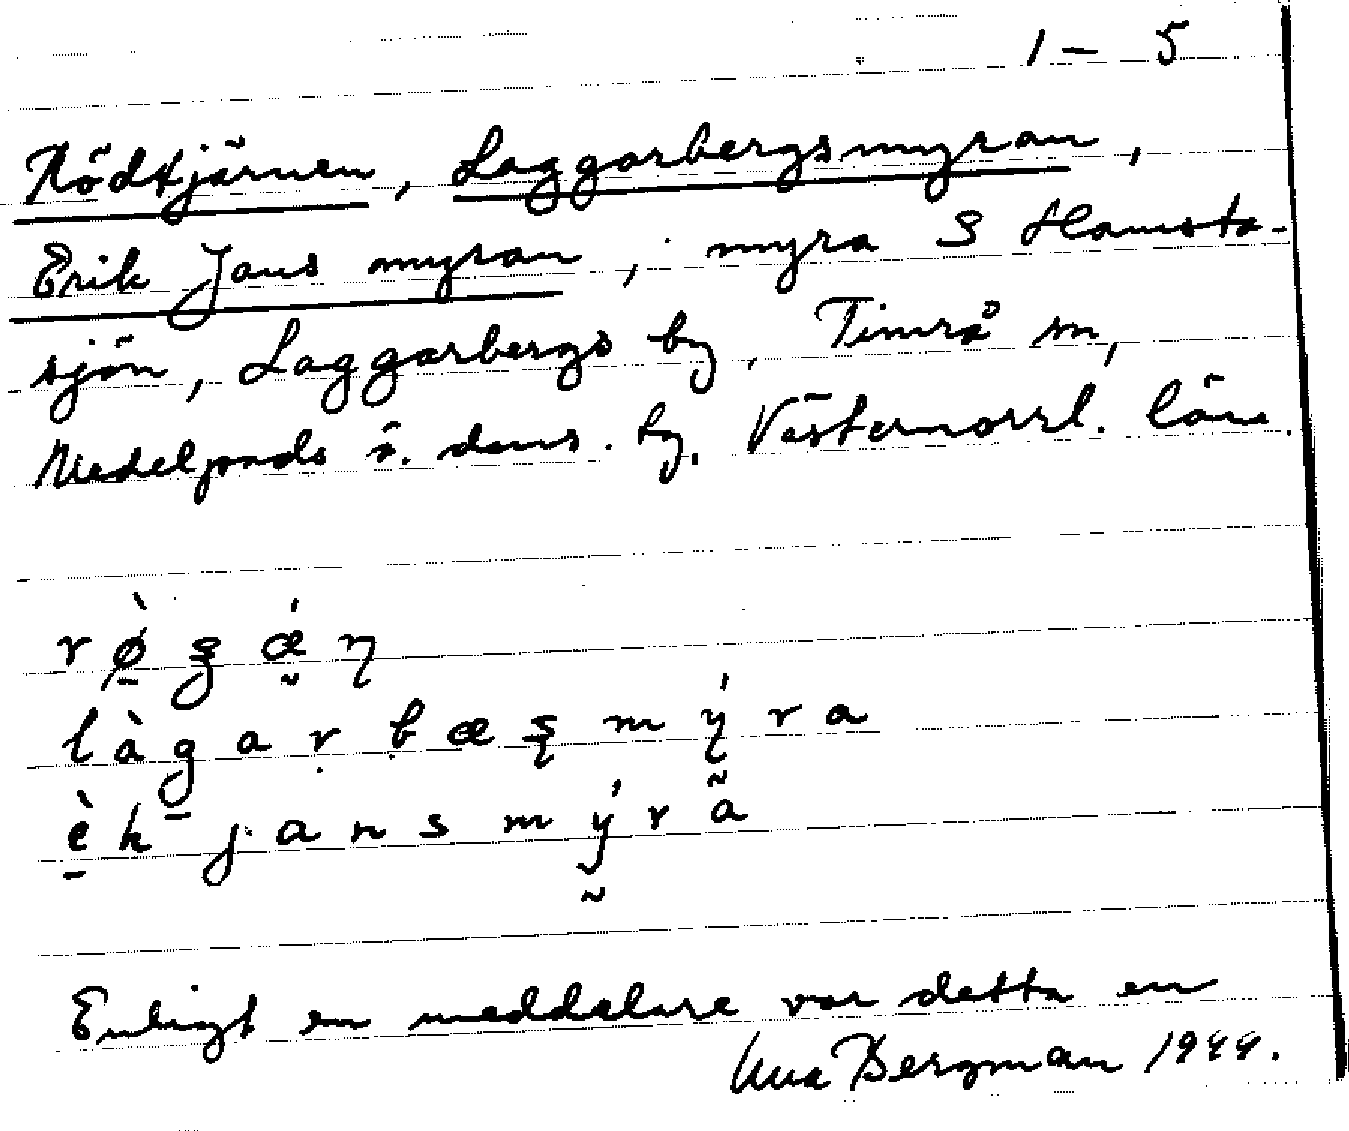 1 – 5
Rödtjärnen, Laggarbergsmyran,
Erik Jans myran, myra S Hamsta-
sjön, Laggarbergs by, Timrå sn,
Medelpads ö. doms. by, Västernorrl. län.
Enligt en meddelare var detta en
Una Bergman 1944.